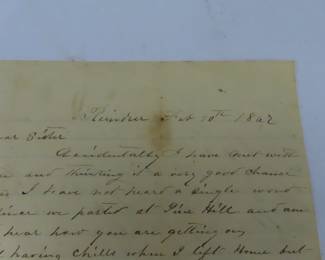 Feb 10th 1862
ear Sister
Accidentally I have met with
and thinking it a very good chance
I have not heard a single word
since we parted at Pine Hill and am
hear how you are getting on
having chills when I left home but